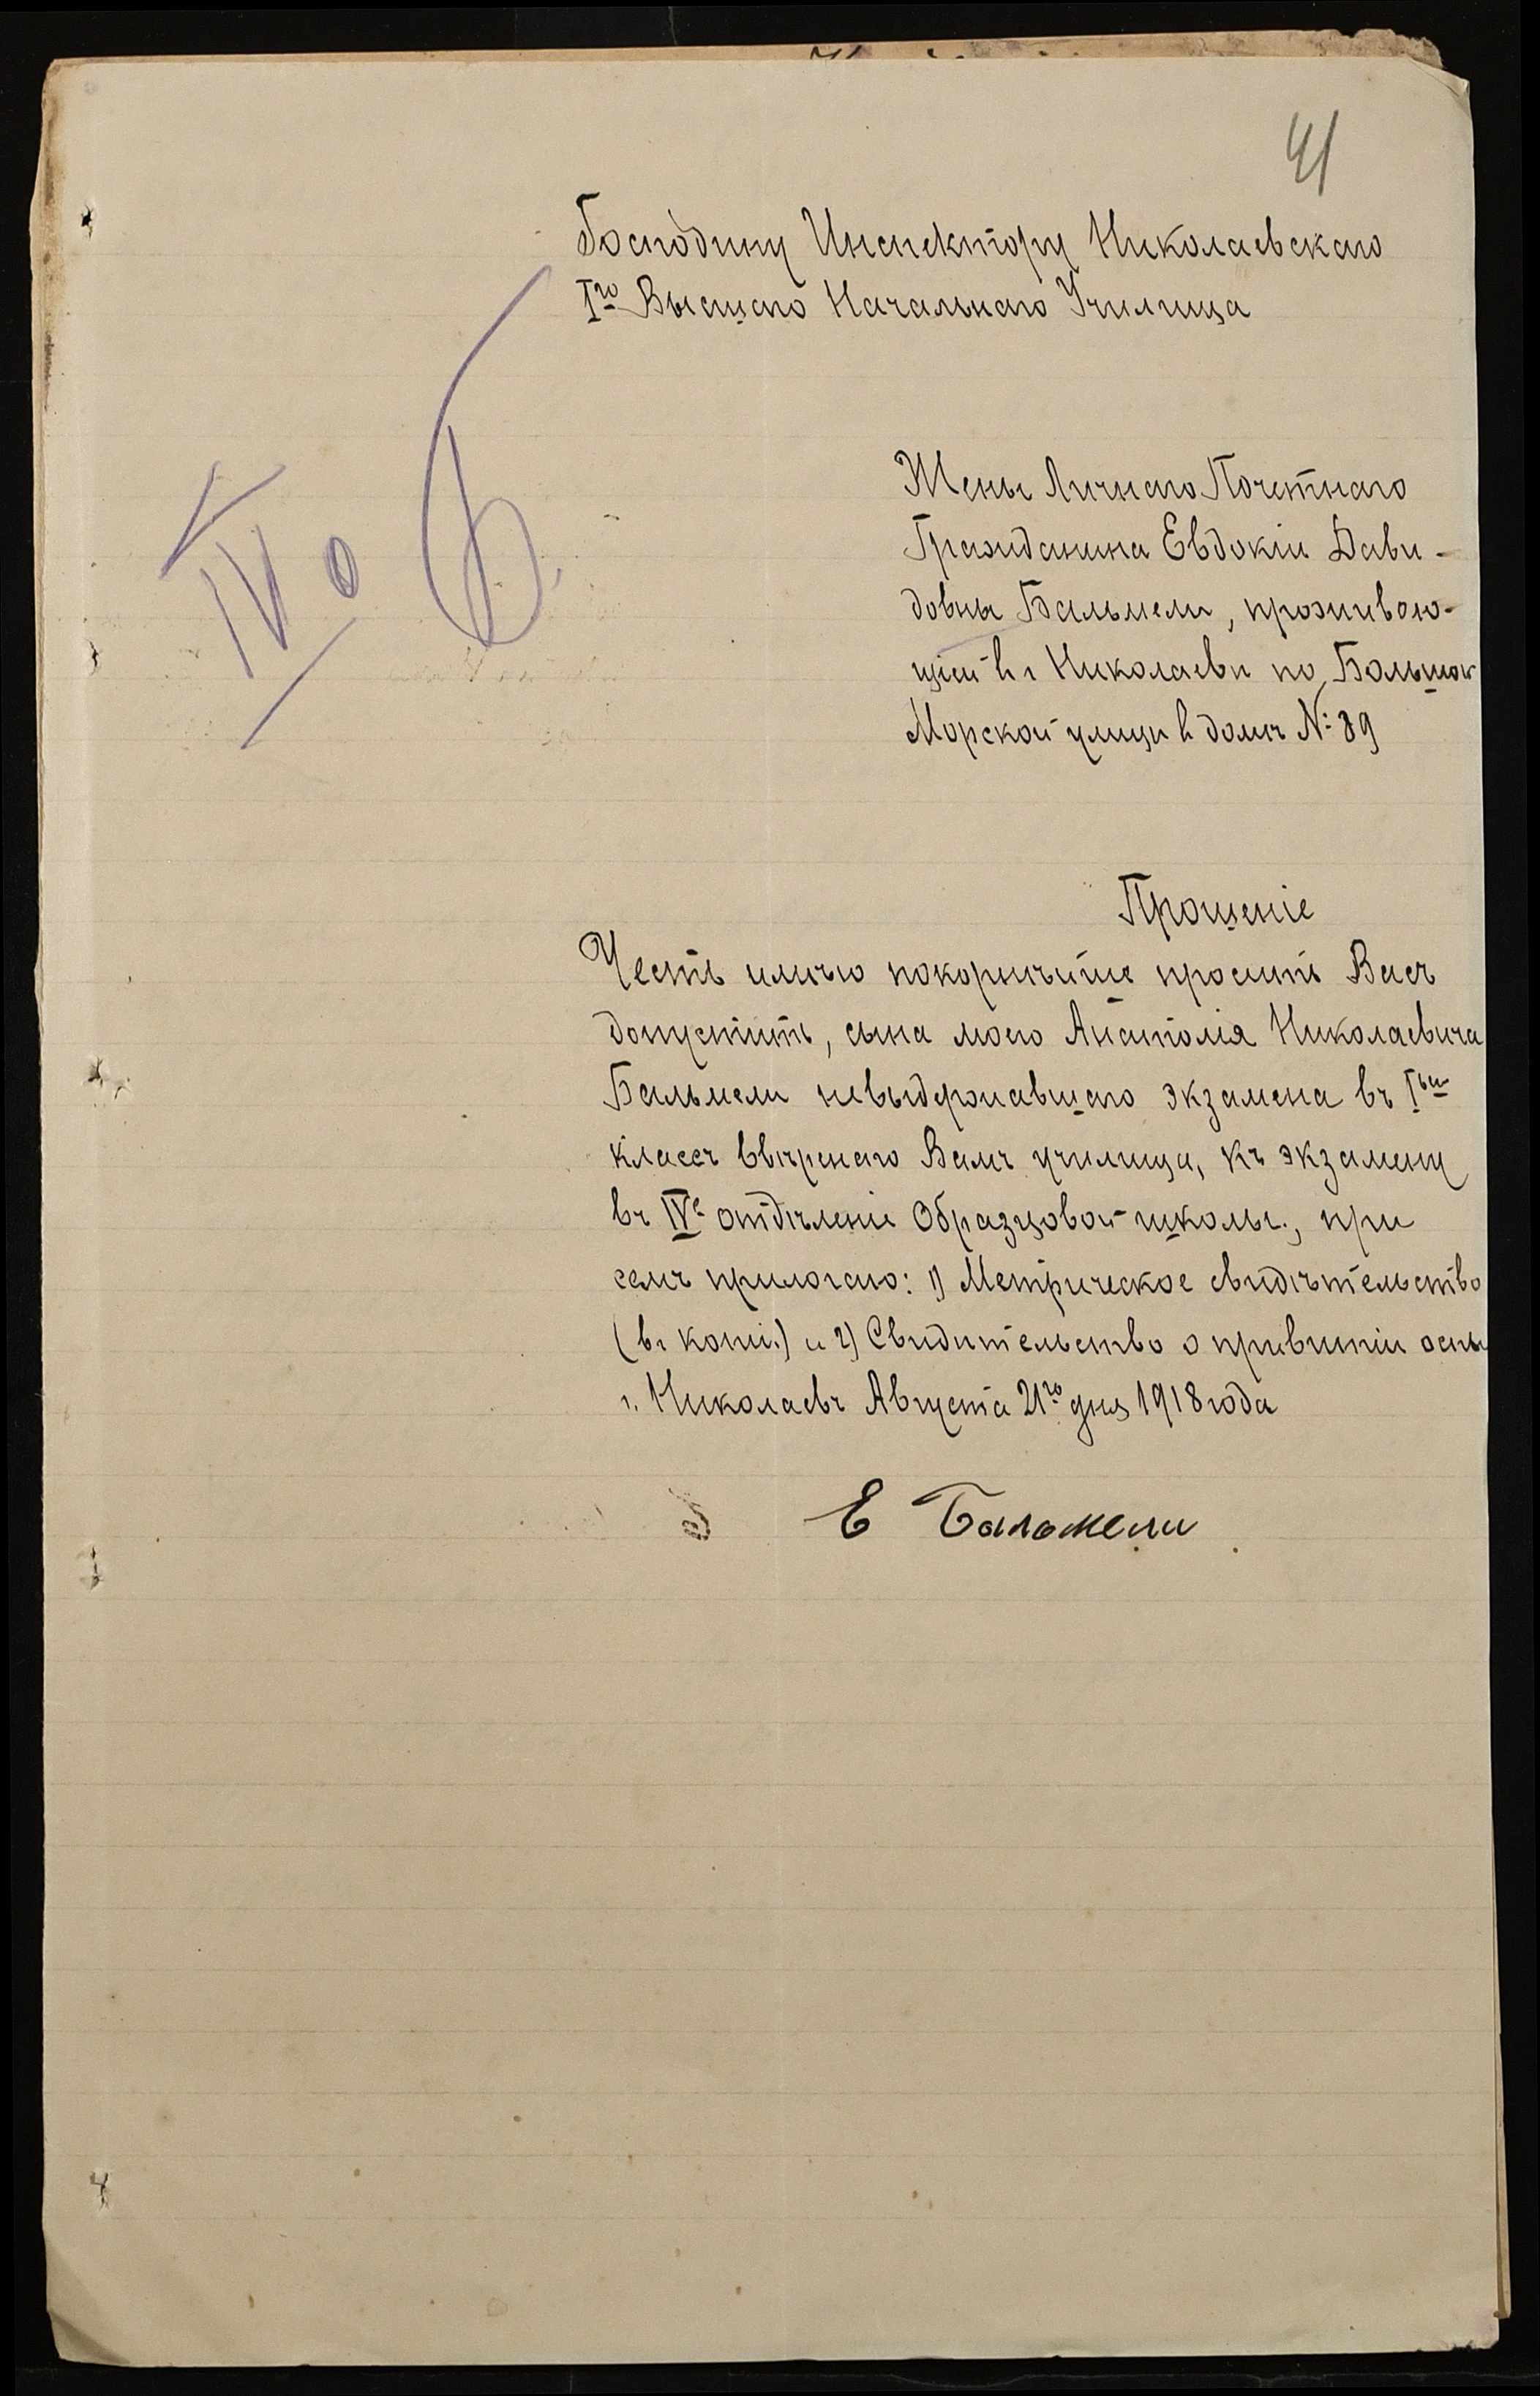 41
Господину Инспектору Николаевскаго
Iго Высшаго Начальнаго Училища
IV о Б.
Жены Личнаго Почетнаго
Гражданина Евдокіи Дави-
довны Бальмели, проживаю-
щей в г Николаеви по Большой
Морской улици в домъ №: 89
Прошеніе
Честь имѣю покорнѣйше просить Васъ
допустить, сына моего Анатолія Николаевича
Бальмели невыдержавшаго экзамена въ Iый
классъ ввѣренаго Вамъ училища, къ экзамену
въ IVе отдѣленіе Образцовой школы., при
семъ прилогаю: 1) Метрическое свидѣтельство
(въ копіи) и 2) Свидительство о привитіи оспы
г. Николаевъ Августа 21го дня 1918 года
Е Балмели